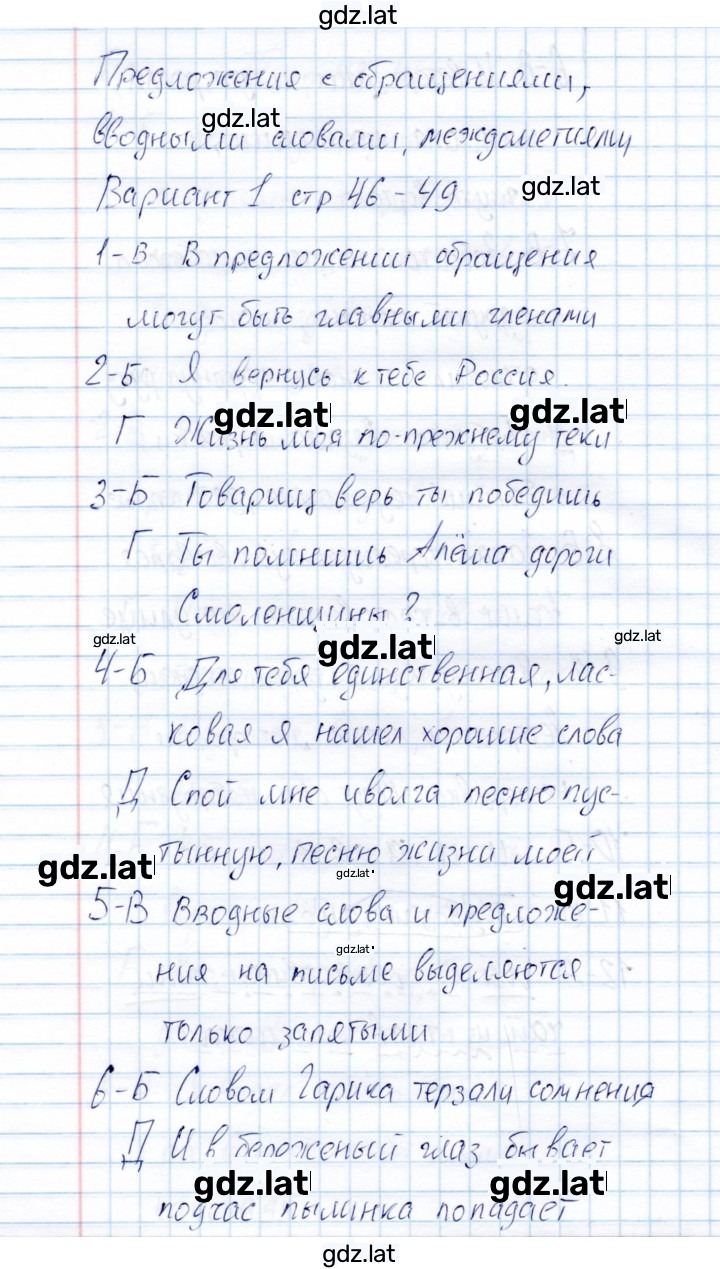 gdz.lat
Предложения с обращениями,
gdz.lat
вводными словами, междометиями
gdz.lat
Вариант 1 стр 46-49
1-В В предложении обращения
могут быть главными членами
2-Б Я вернусь к тебе Россия.
gdz.lat gdz.lat
Г Жизнь моя по-прежнему теки
3-Б Товарищ верь ты победишь
Г Ты помнишь Алёша дороги
Смоленщины?
gdz.lat gdz.lat gdz.lat
4-Б Для тебя единственная, лас-
ковая я нашел хорошие слова
Д Спой мне иволга песню пус-
тынную, песню жизни моей
gdz.lat gdz.lat gdz.lat
5-В Вводные слова и предложе-
gdz.lat
ния на письме выделяются
только запятыми
6-Б Словом Гарика терзали сомнения
Д И в беложеный глаз бывает
gdz.lat gdz.lat
подчас пылинка попадает
gdz.lat